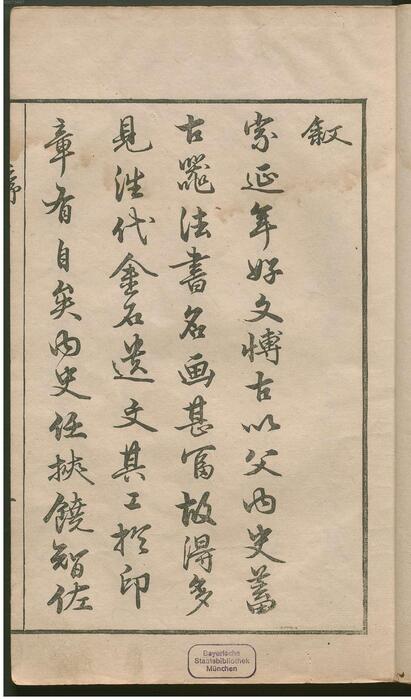 叙
延年好文愽古以父内史蓄
古器法書名画甚富故得多
見往代金石遺文其工於印
章有自矣内史任挾饒智佐
序
Bayerische
Staatsbibliothek
München